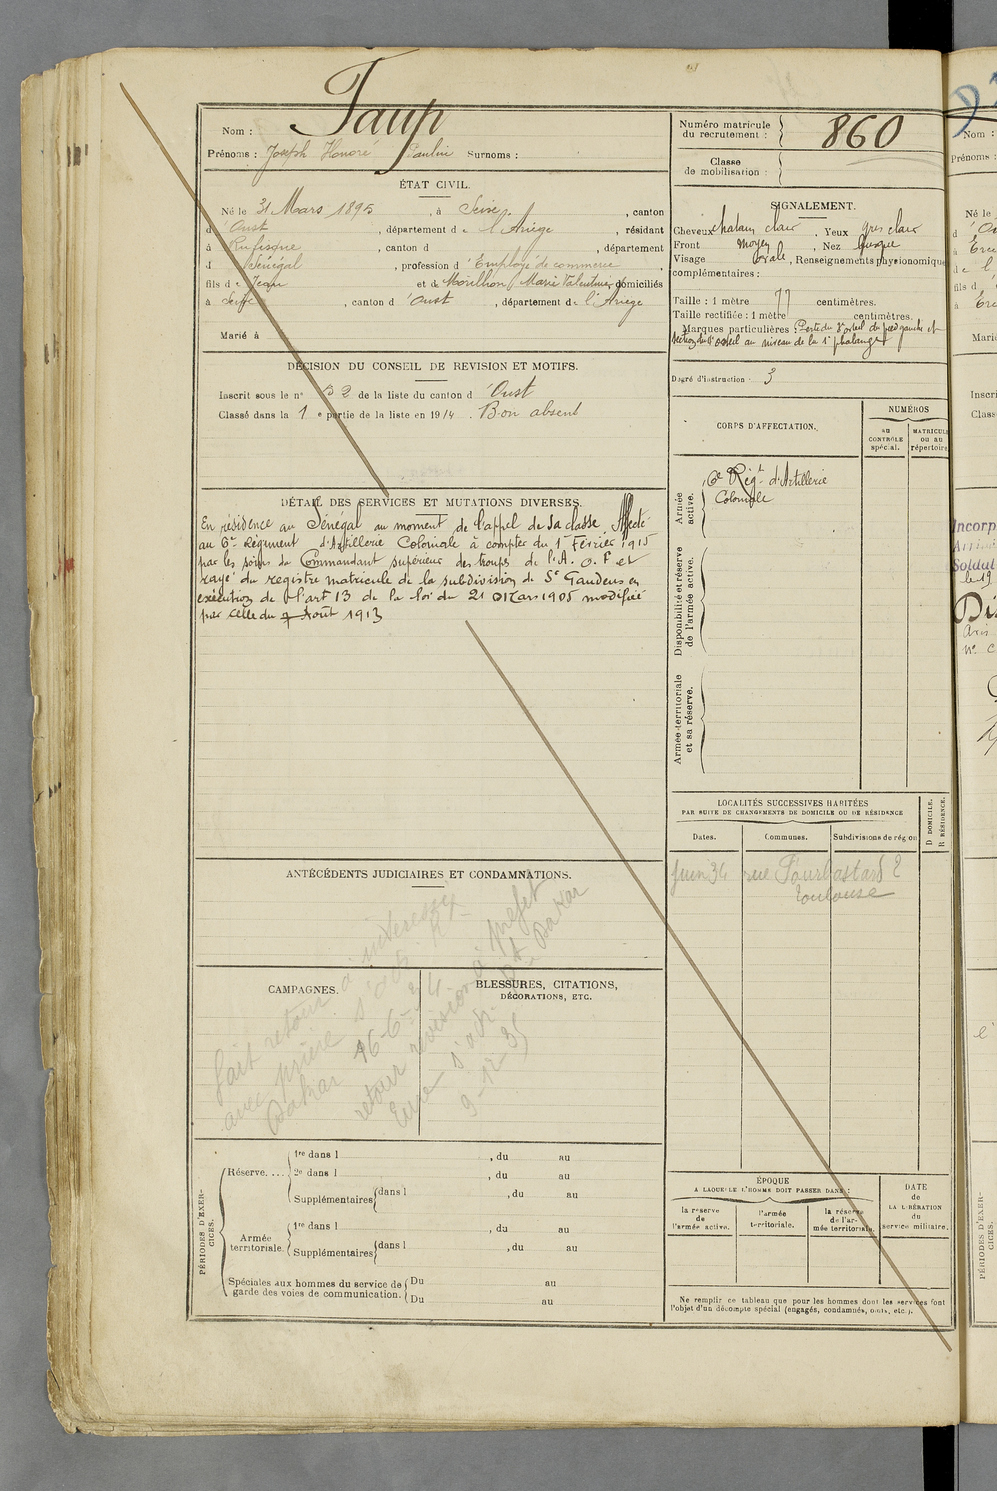 Taup
Nom :
Prénoms : Joseph Honoré Paulin Surnoms :
ÉTAT CIVIL.
Né le 31 Mars 1895, à Seix, canton
d'Oust, département de l'Ariège, résidant
à Rufisque, canton d , département
d Sénégal, profession d'Employé de commerce,
fils de Jean et de Morillon Marie Valentine, domiciliés
à Seix, canton d'Oust, département de l'Ariège
Marié à
DÉCISION DU CONSEIL DE REVISION ET MOTIFS.
Inscrit sous le n° 52 de la liste du canton d'Oust
Classé dans la 1e partie de la liste en 1914. Bon absent
DÉTAIL DES SERVICES ET MUTATIONS DIVERSES.
En résidence au Sénégal au moment de l'appel de sa classe Affecté
au 6e Régiment d'Artillerie Coloniale à compter du 1er Février 1915
par les soins du Commandant supérieur des troupes de l'A.O.F et
rayé du registre matricule de la subdivision de St Gaudens en
exécution de l'art 13 de la loi du 21 Mars 1905 modifiée
par celle du 7 Août 1913
ANTÉCÉDENTS JUDICIAIRES ET CONDAMNATIONS.
CAMPAGNES.
BLESSURES, CITATIONS,
DÉCORATIONS, ETC.
fait retour
avec prière
Dakar 16-6-34
retour revision à préfet
Dakar
9-12-35
PÉRIODES D'EXERCICES.
Réserve....
1re dans l , du au
2e dans l , du au
Supplémentaires dans l , du au
au
Armée
territoriale.
1re dans l , du au
Supplémentaires dans l , du au
Spéciales aux hommes du service de
garde des voies de communication.
Du au
Du au
Numéro matricule
du recrutement : 860
Classe
de mobilisation :
SIGNALEMENT.
Cheveux chatain clair, Yeux gris clair
Front moyen, Nez busqué
Visage ovale, Renseignements physionomiques
complémentaires :
Taille : 1 mètre 77 centimètres.
Taille rectifiée : 1 mètre centimètres.
Marques particulières : Perte du orteil du pied gauche et
section du orteil au niveau de la 1e phalange
Degré d'instruction : 3
CORPS D'AFFECTATION.
NUMÉROS
au
CONTRÔLE
spécial.
MATRICULE
ou au
répertoire
Armée
active.
6e Régt d'Artillerie
Coloniale
Disponibilité et réserve
de l'armée active.
Armée territoriale
et sa réserve.
LOCALITÉS SUCCESSIVES HABITÉES
PAR SUITE DE CHANGEMENTS DE DOMICILE OU DE RÉSIDENCE
D DOMICILE.
R RÉSIDENCE.
Dates.
Communes.
Subdivisions de région
Juin 34 rue 2
Toulouse
ÉPOQUE
A LAQUELLE L'HOMME DOIT PASSER DANS :
la réserve
de
l'armée active.
l'armée
territoriale.
la réserve
de l'ar-
mée territoriale.
DATE
de
LA LIBÉRATION
du
service militaire.
Ne remplir ce tableau que pour les hommes dont les services font
l'objet d'un décompte spécial (engagés, condamnés, omis, etc.).
Nom :
Prénoms :
Né le
Marié
Inscri
Class
Incorp
Soldat
PÉRIODES D'EXER-
CICES.